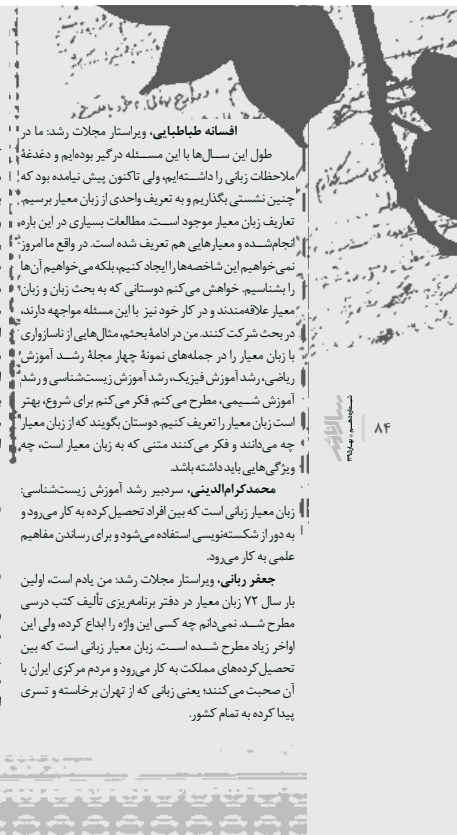 افسانه طباطبایی، ویراستار مجلات رشد: ما در
طول این ســال‌ها با این مســئله درگیر بوده‌ایم و دغدغهٔ
ملاحظات زبانی را داشــته‌ایم، ولی تاکنون پیش نیامده بود که
چنین نشستی بگذاریم و به تعریف واحدی از زبان معیار برسیم.
تعاریف زبان معیار موجود اســت. مطالعات بسیاری در این باره
انجام‌شــده و معیارهایی هم تعریف شده است. در واقع ما امروز
نمی‌خواهیم این شاخصه‌ها را ایجاد کنیم، بلکه می‌خواهیم آن‌ها
را بشناسیم. خواهش می‌کنم دوستانی که به بحث زبان و زبان
معیار علاقه‌مندند و در کار خود نیز با این مسئله مواجهه دارند،
در بحث شرکت کنند. من در ادامهٔ بحثم، مثال‌هایی از ناسازواری
با زبان معیار را در جمله‌های نمونهٔ چهار مجلهٔ رشــد آموزش
ریاضی، رشد آموزش فیزیک، رشد آموزش زیست‌شناسی و رشد
آموزش شــیمی، مطرح می‌کنم. فکر می‌کنم برای شروع، بهتر
است زبان معیار را تعریف کنیم. دوستان بگویند که از زبان معیار
چه می‌دانند و فکر می‌کنند متنی که به زبان معیار است، چه
ویژگی‌هایی باید داشته باشد.
محمدکرام‌الدینی، سردبیر رشد آموزش زیست‌شناسی:
زبان معیار زبانی است که بین افراد تحصیل‌کرده به کار می‌رود و
به دور از شکسته‌نویسی استفاده می‌شود و برای رساندن مفاهیم
علمی به کار می‌رود.
جعفر ربانی، ویراستار مجلات رشد: من یادم است، اولین
بار سال ۷۲ زبان معیار در دفتر برنامه‌ریزی تألیف کتب درسی
مطرح شــد. نمی‌دانم چه کسی این واژه را ابداع کرده، ولی این
اواخر زیاد مطرح شــده اســت. زبان معیار زبانی است که بین
تحصیل‌کرده‌های مملکت به کار می‌رود و مردم مرکزی ایران با
آن صحبت می‌کنند؛ یعنی زبانی که از تهران برخاسته و تسری
پیدا کرده به تمام کشور.
۸۴